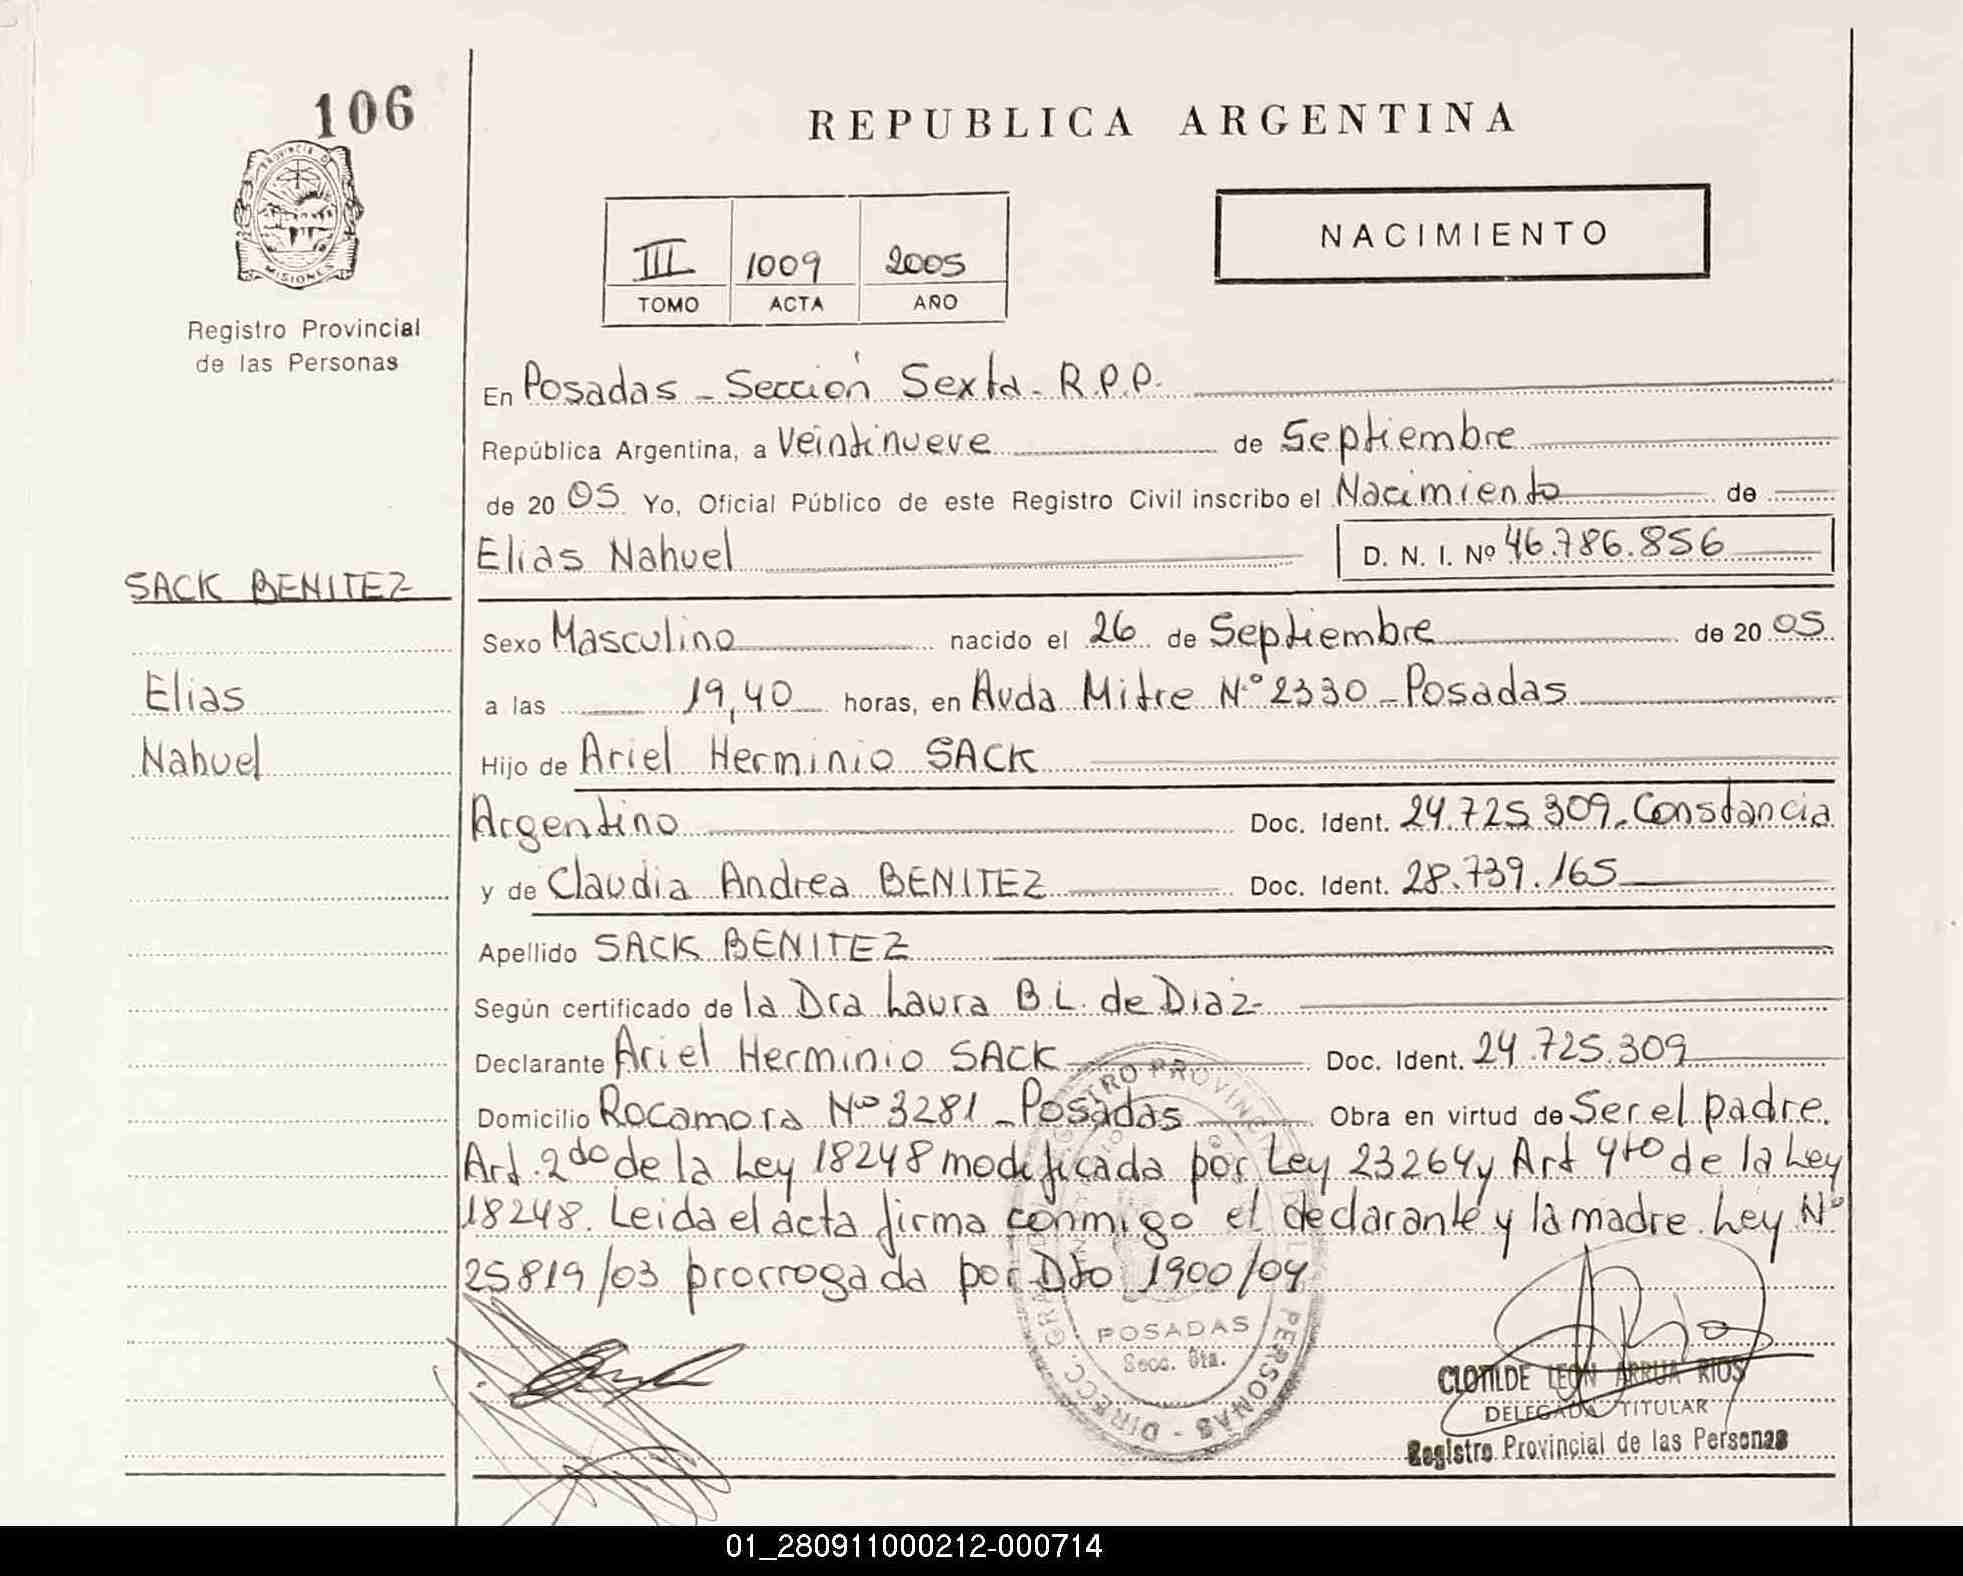 106
REPUBLICA ARGENTINA
PROVINCIA D
MISIONES
Registro Provincial
de las Personas
III 1009 2005
TOMO ACTA AÑO
NACIMIENTO
En Posadas - Sección Sexta - R.P.P.
República Argentina, a Veintinueve de Septiembre
de 20 05 Yo, Oficial Público de este Registro Civil inscribo el Nacimiento de
Elias Nahuel D. N. I. Nº 46.786.856
SACK BENITEZ
Elias
Nahuel
Sexo Masculino nacido el 26 de Septiembre de 20 05
a las 19,40 horas, en Avda Mitre N.º 2330 - Posadas
Hijo de Ariel Herminio SACK
Argentino Doc. Ident. 24.725.309. Constancia
y de Claudia Andrea BENITEZ Doc. Ident. 28.739.165
Apellido SACK BENITEZ
Según certificado de la Dra Laura B.L. de Diaz-
Declarante Ariel Herminio SACK Doc. Ident. 24.725.309
Domicilio Rocamora Nº 3281 - Posadas Obra en virtud de Ser el padre.
Art. 2do de la Ley 18248 modificada por Ley 23264 y Art 4to de la Ley
18248. Leida el acta firma conmigo el declarante y la madre. Ley Nº
25819/03 prorrogada por Dto 1900/04
POSADAS
Secc. 6ta.
CLOTILDE LEON ARRUA RIOS
DELEGADA TITULAR
Registro Provincial de las Personas
01_280911000212-000714